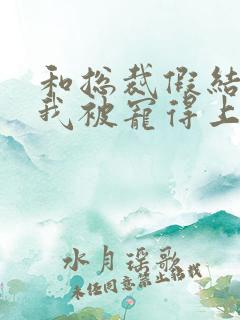 和总裁假结
我被宠得上
水月谣歌
未经同意禁止转载